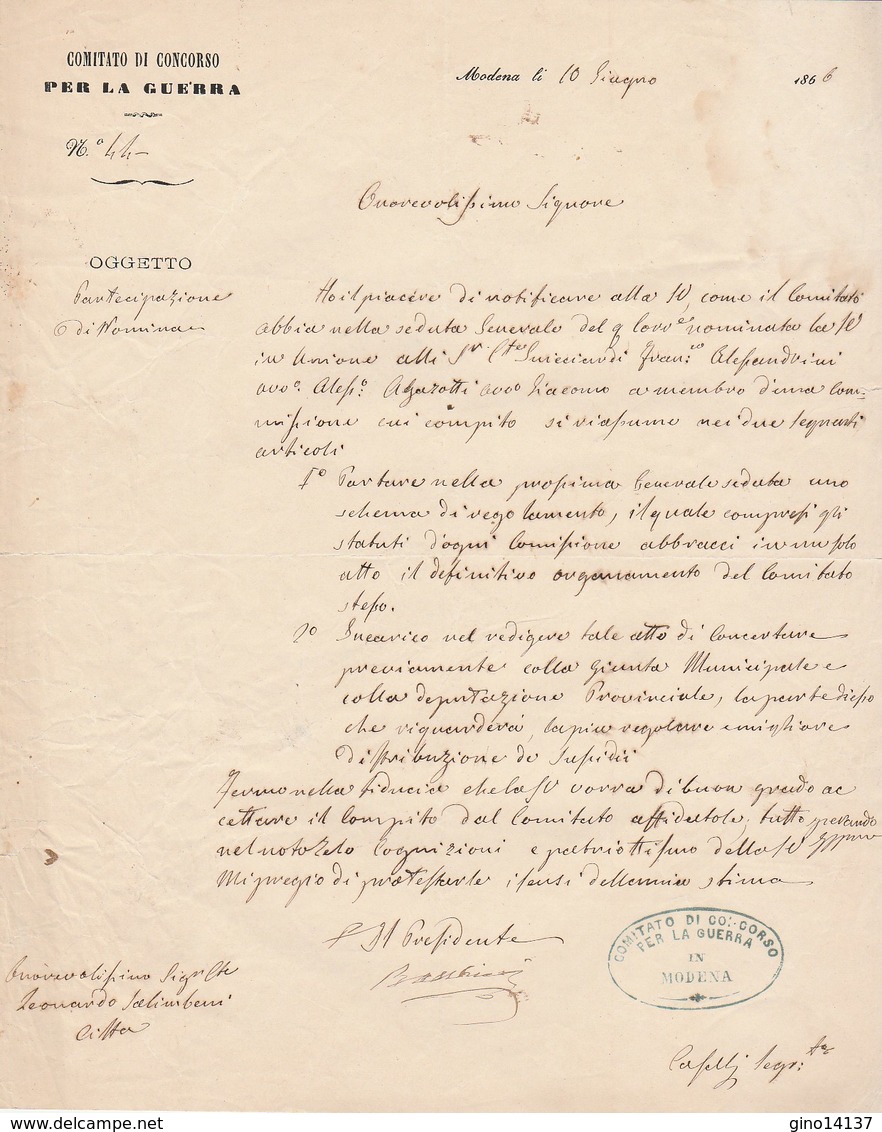 COMITATO DI CONCORSO
PER LA GUERRA
N.º 44
Modena li 10 Giugno 1866
Onorevolissimo Signore
OGGETTO
Partecipazione
di Nomina
Ho il piacere di notificare alla SV, come il Comitato
abbia nella seduta Generale del 9 Corre nominata la SV
in Unione alli Sr Cte Guicciardi Franco Alessandrini
avvo. Alesso. Agazzotti avvo Giacomo a membro d'una Com-
missione cui compito si riassume nei due seguenti
articoli
1º Portare nella prossima Generale seduta uno
schema di regolamento, il quale compresi gli
statuti d'ogni Comissione abbracci in un solo
atto il definitivo organamento del Comitato
stesso.
2º Incarico nel redigere tale atto di Concertare
previamente colla Giunta Municipale e
colla deputazione Provinciale, la parte di esso
che riguarderá, la piu regolare e migliore
distribuzione de Sussidii
Fermo nella fiducia che la SV vorra di buon grado ac
cettare il Compito dal Comitato affidatole, tutto sperando
nel noto Zelo Cognizioni e patriottismo della SV
Mi pregio di protestarle i sensi della mia stima
Il Presidente
COMITATO DI CONCORSO
PER LA GUERRA
IN
MODENA
Onorevolissimo Sigr Cte
Leonardo Salimbeni
Città
Caselli Segr:
delcampe.net
gino14137